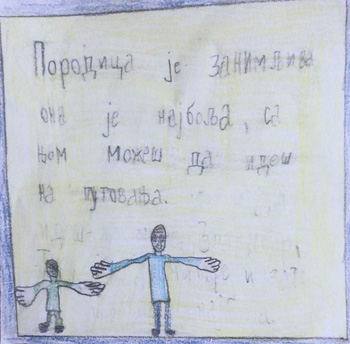 Породица је занимљива
она је најбоља, са
њом можеш да идеш
на путовања.